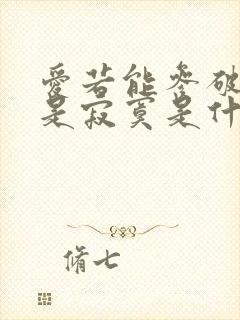 愛若能參破
是寂寞是什
脩七